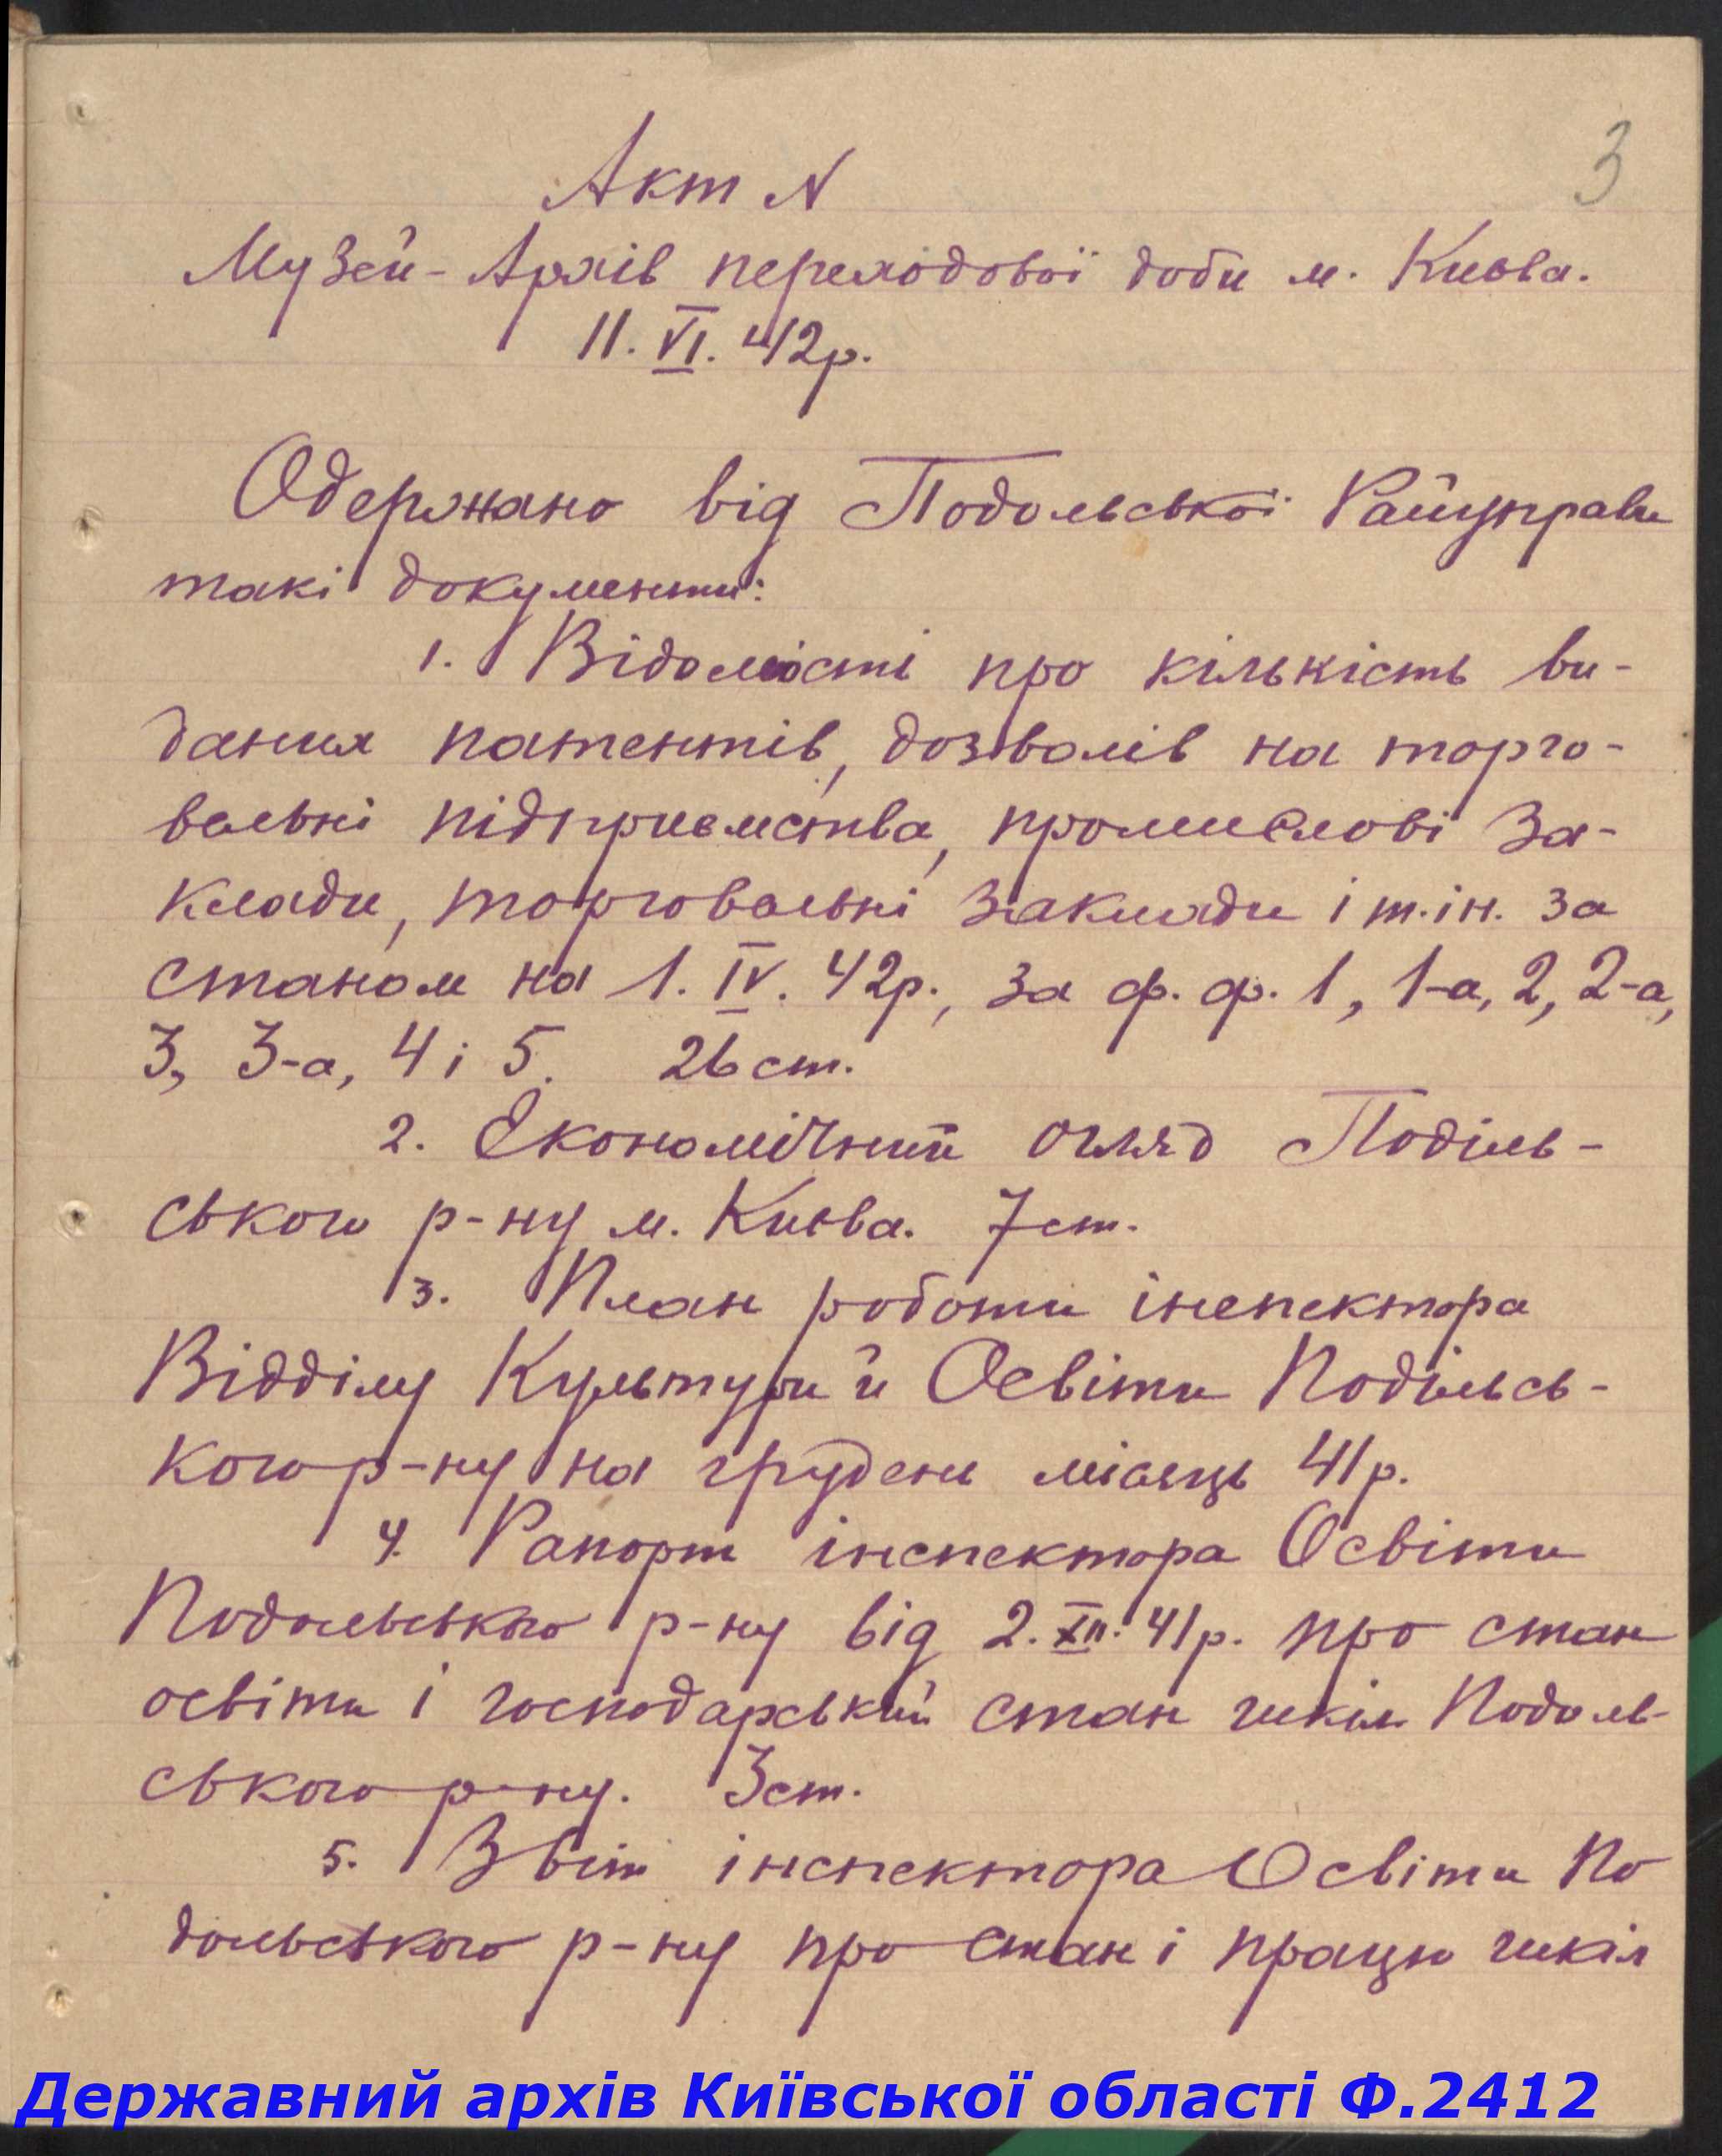 3
Акт N
Музей-Архів переходової доби м. Києва.
11. VI. 42р.
Одержано від Подольської Райуправи
такі документи:
1. Відомості про кількість ви-
дання патентів, дозволів на торго-
вельні підприємства, промислові за-
клади, торговельні заклади і т.ін. за
станом на 1. IV. 42р., за ф. ф. 1, 1-а, 2, 2-а,
3, 3-а, 4 і 5. 26 ст.
2. Економічний огляд Поділь-
ського р-ну м. Києва. 7 ст.
3. План роботи інспектора
Відділу Культури й Освіти Подільсь-
кого р-ну на грудень місяць 41р.
4. Рапорт інспектора Освіти
Подольського р-ну від 2. XII. 41р. про стан
освіти і господарський стан шкіл Подоль-
ського р-ну. 3 ст.
5. Звіт інспектора Освіти По
дольського р-ну про стан і працю шкіл
Державний архів Київської області Ф.2412